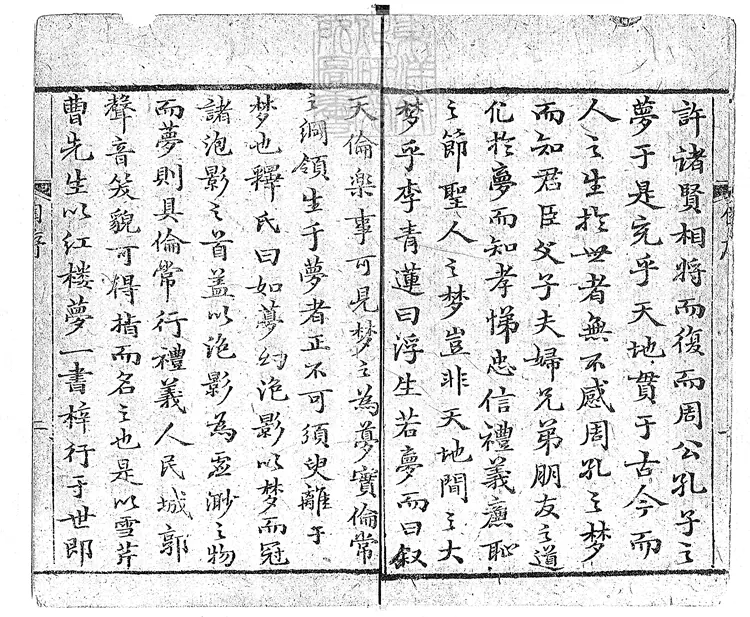 許諸賢相將而復而周公孔子之
夢于是充乎天地貫于古今而
人之生於世者無不感周孔之梦
而知君臣父子夫婦兄弟朋友之道
化於夢而知孝悌忠信禮義廉恥
之節聖人之梦豈非天地間之大
梦乎李青蓮曰浮生若夢而曰叙
天倫樂事可見梦之為夢實倫常
之綱領生于夢者正不可須臾離于
梦也釋氏曰如夢幻泡影以梦而冠
諸泡影之首盖以泡影為虛渺之物
而夢則具倫常行禮義人民城郭
聲音笑貌可得指而名之也是以雪芹
曹先生以紅楼夢一書梓行于世即
自序
一